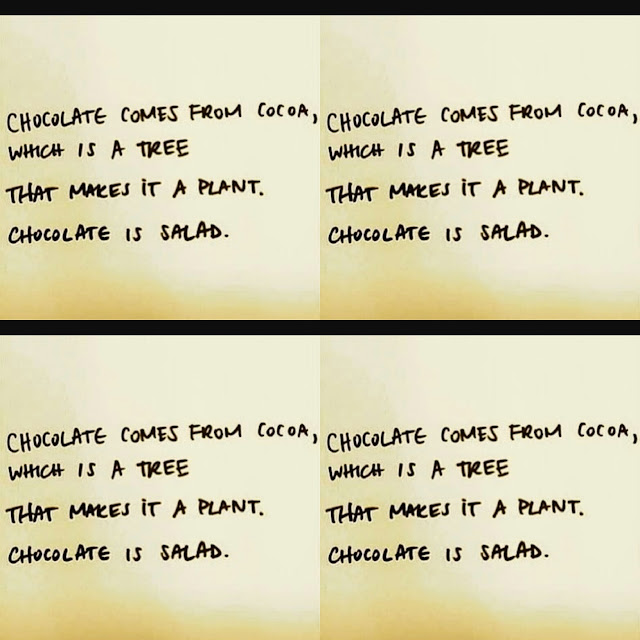 CHOCOLATE COMES FROM COCOA,
WHICH IS A TREE
THAT MAKES IT A PLANT.
CHOCOLATE IS SALAD.
CHOCOLATE COMES FROM COCOA,
WHICH IS A TREE
THAT MAKES IT A PLANT.
CHOCOLATE IS SALAD.
CHOCOLATE COMES FROM COCOA,
WHICH IS A TREE
THAT MAKES IT A PLANT.
CHOCOLATE IS SALAD.
CHOCOLATE COMES FROM COCOA,
WHICH IS A TREE
THAT MAKES IT A PLANT.
CHOCOLATE IS SALAD.